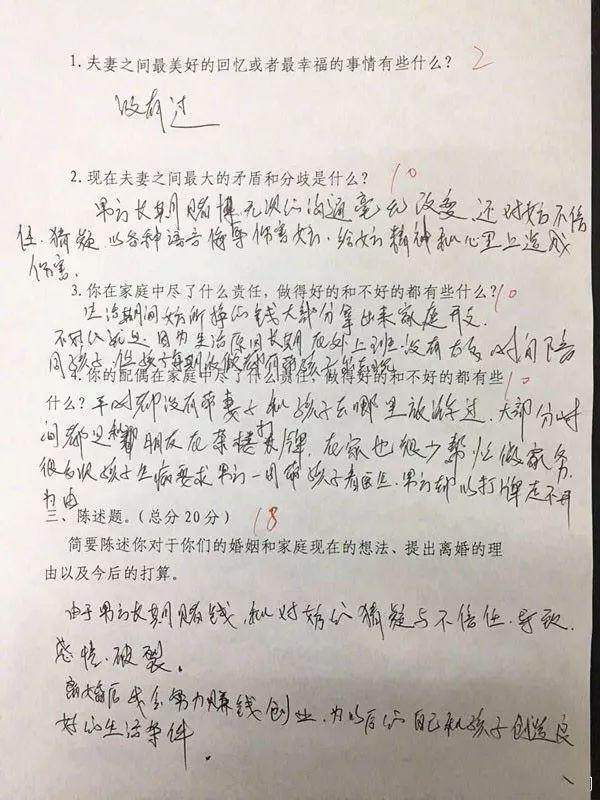 1. 夫妻之间最美好的回忆或者最幸福的事情有些什么? 2
没有过
2. 现在夫妻之间最大的矛盾和分歧是什么? 10
男方长期赌博无次的沟通毫无改变,还对女方不信
任.猜疑以各种语言侮辱伤害女方.给女方精神和心里上造成
伤害.
3. 你在家庭中尽了什么责任,做得好的和不好的都有些什么? 10
生活期间女方所得的钱大部分拿出来家庭开支.
不好的就是因为生活原因长期在外上班没有太多时间陪
同孩子.
4. 你的配偶在家庭中尽了什么责任,做得好的和不好的都有些 10
什么? 平时都没有带妻子和孩子去哪里放松过.大部分时
间都是和朋友在茶楼打牌.在家也很少帮忙做家务.
孩子生病要求男方一同带孩子看医生.男方却以打牌走不开
为由
三、陈述题。(总分20分) 18
简要陈述你对于你们的婚姻和家庭现在的想法、提出离婚的理
由以及今后的打算。
由于男方长期赌钱,和对女方的猜疑与不信任.导致.
感情.破裂.
离婚后我会努力赚钱创业,为以后的自己和孩子创造良
好的生活条件.